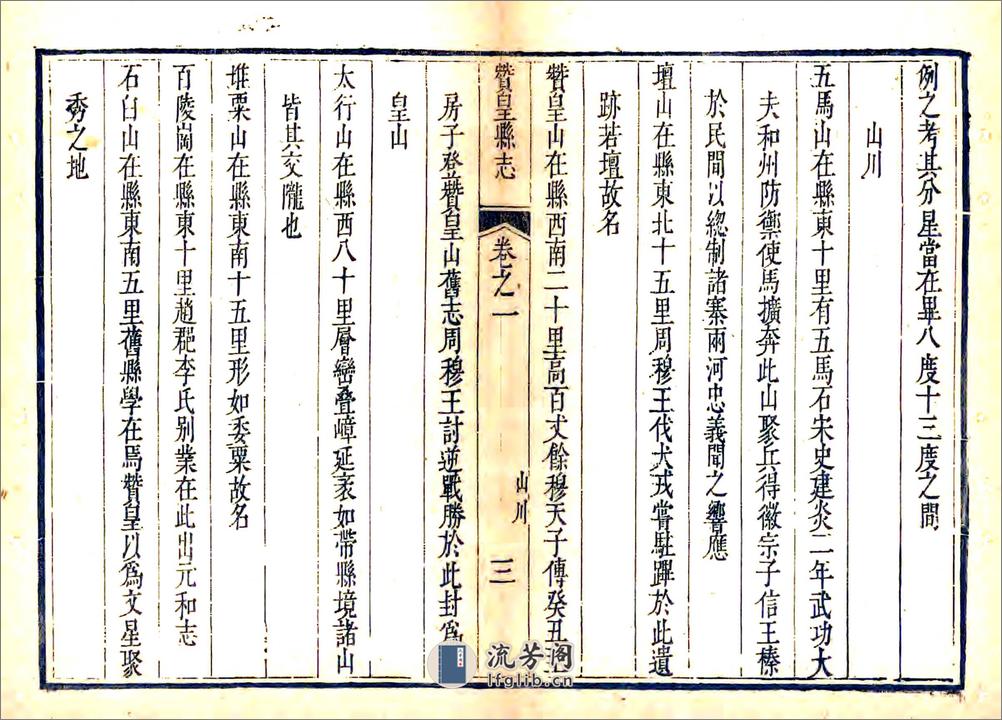 例之考其分星當在畢八度十三度之間
山川
五馬山在縣東十里有五馬石宋史建炎二年武功大
夫和州防禦使馬擴奔此山聚兵得徽宗子信王榛
於民間以總制諸寨兩河忠義聞之響應
壇山在縣東北十五里周穆王伐犬戎嘗駐蹕於此遺
跡若壇故名
贊皇山在縣西南二十里高百丈餘穆天子傳癸丑
贊皇縣志
卷之一
山川
三
房子登贊皇山舊志周穆王討逆戰勝於此封爲
皇山
太行山在縣西八十里層巒疊嶂延袤如帶縣境諸山
皆其支隴也
堆粟山在縣東南十五里形如委粟故名
百陵崗在縣東十里趙郡李氏别業在此出元和志
石臼山在縣東南五里舊縣學在焉贊皇以爲文星聚
秀之地
流芳阁
lfglib.cn